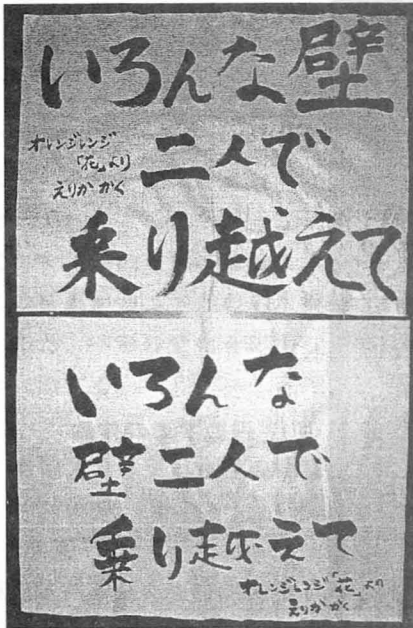 いろんな壁
オレンジレンジ
「花」より
えりか かく
二人で
乗り越えて
いろんな
壁二人で
乗り越えて
オレンジレンジ「花」より
えりか かく